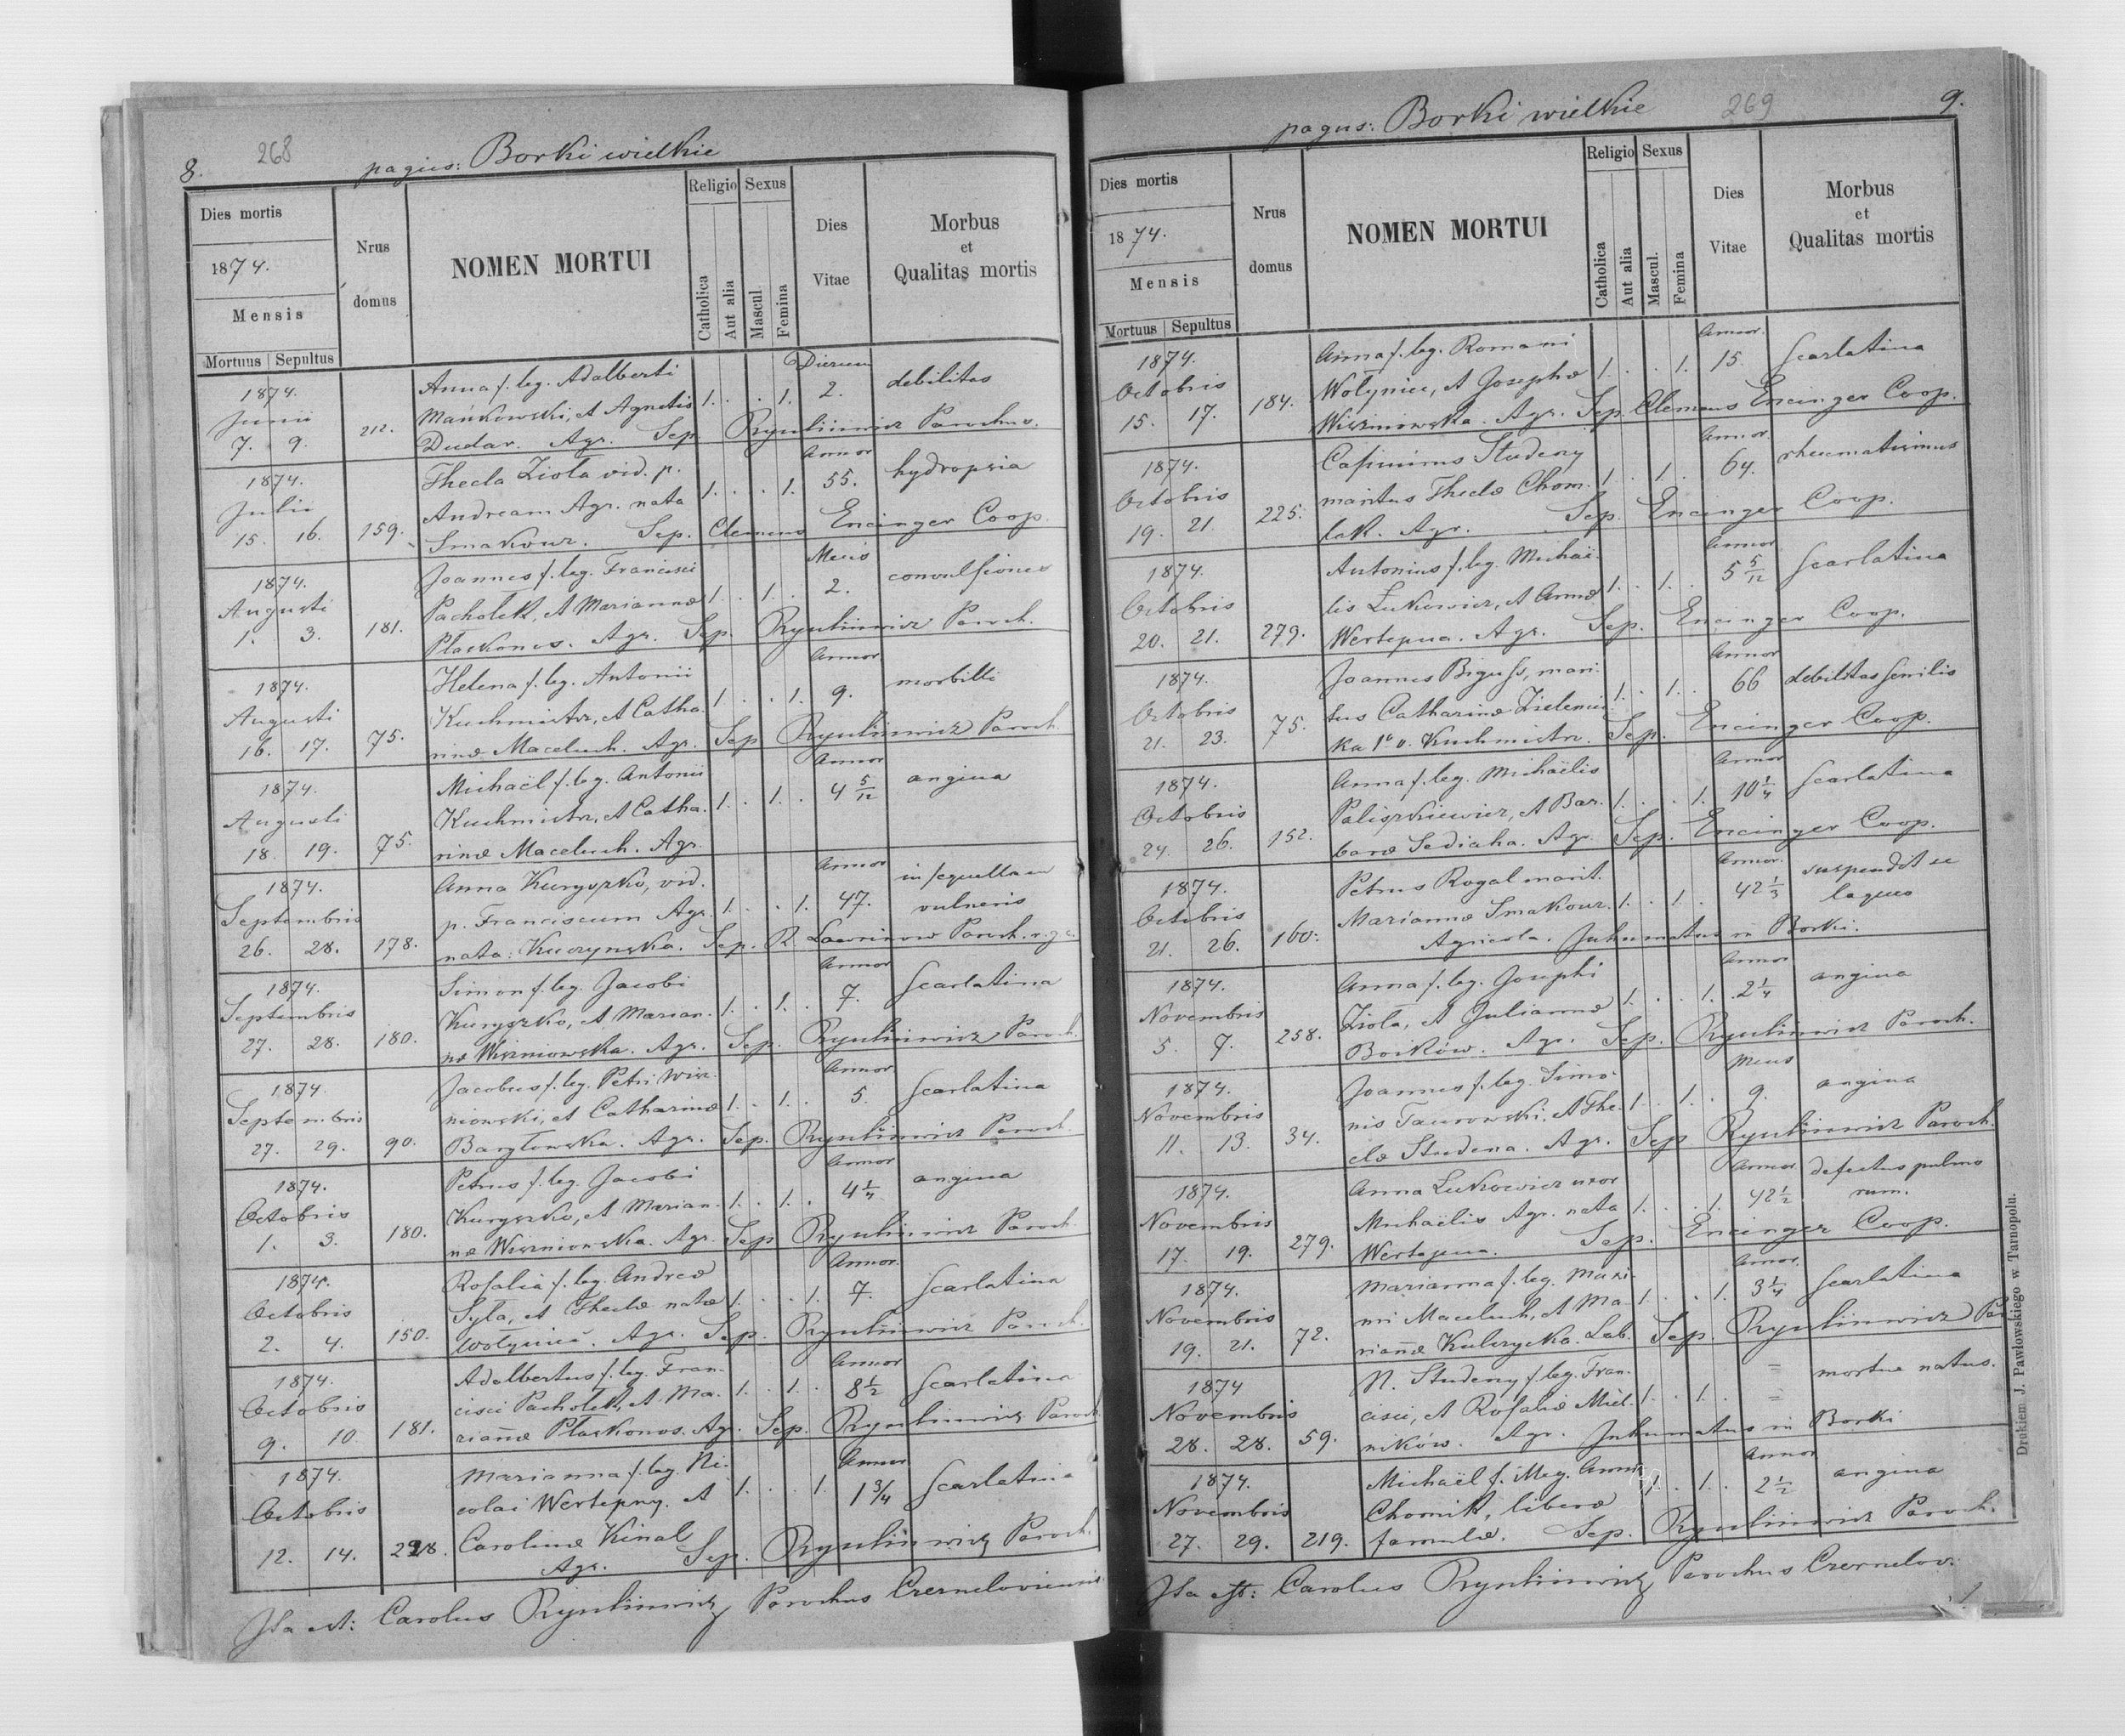 8.
268
pagus: Borki wielkie
Dies mortis
1874.
Mensis
Mortuus Sepultus
Nrus domus
NOMEN MORTUI
Religio
Catholica
Aut alia
Sexus
Mascul
Femina
Dies Vitae
Morbus et Qualitas mortis
1874. Anna f. leg. Adalberti Dierum
Junii Mańkowski, et Agnetis 1. . . 1. 2. debilitas
7. 9. 212. Dudar. Agr. Sep. Parochus.
1874. Thecla Zioła vid. p. Annor
Julii Andream Agr. nata 1. . . 1. 55. hydropsia
15. 16. 159. Smakour. Sep. Clemens Encinger Coop.
1874. Joannes f. leg. Francisci Mens
Augusti Pacholek, et Marianne 1. . 1. . 2. convulsiones
1. 3. 181. Płaskonos. Agr. Sep. Paroch.
1874. Helena f. leg. Antonii Annor
Augusti Kuchmistr, et Catha- 1. . . 1. 9. morbilli
16. 17. 75. rinæ Maceluch. Agr. Sep. Paroch.
1874. Michaël f. leg. Antonii Annor
Augusti Kuchmistr, et Catha- 1. . 1. . 4 5/12 angina
18. 19. 75. rinæ Maceluch. Agr.
1874. Anna Kuryszko, vid. Annor in sequellam
Septembris p. Franciscum Agr. 1. . . 1. 47. vulneris
26. 28. 178. nata: Sep. R. Paroch. r. g. c.
1874. Simon f. leg. Jacobi Annor
Septembris Kuryszko, et Marian- 1. . 1. . 7. Scarlatina
27. 28. 180. næ Wiszniowska. Agr. Sep. Paroch.
1874. Jacobus f. leg. Petri Wisz- Annor
Septembris niowski, et Catharinæ 1. . 1. . 5. Scarlatina
27. 29. 90. Baryłowska. Agr. Sep. Paroch.
1874. Petrus f. leg. Jacobi Annor
Octobris Kuryszko, et Marian- 1. . 1. . 4 1/4 angina
1. 3. 180. næ Wiszniowska. Agr. Sep. Paroch.
1874. Rosalia f. leg. Andreæ Annor.
Octobris Syła, et Theclæ natæ 1. . . 1. 7. Scarlatina
2. 4. 150. Wołyniec. Agr. Sep. Paroch.
1874. Adalbertus f. leg. Fran- Annor
Octobris cisci Pacholek, et Ma- 1. . 1. . 8 1/2 Scarlatina
9. 10 181. riannæ Płaskonos. Agr. Sep. Paroch
1874. Marianna f. leg. Ni- Annor
Octobris colai Wertepny. et 1. . . 1. 1 3/4 Scarlatina
12. 14. Carolinæ Kinal
Agr. Sep. Paroch.
Ita est: Carolus Parochus Czerneloviensis
pagus: Borki wielkie
269
9.
Dies mortis
1874.
Mensis
Mortuus Sepultus
Nrus domus
NOMEN MORTUI
Religio
Catholica
Aut alia
Sexus
Mascul.
Femina
Dies Vitae
Morbus et Qualitas mortis
1874. Anna f. leg. Romani Annor.
Octobris Wołyniec, et Josephæ 1. . . 1. 15. Scarlatina
15. 17. 184. Wiszniowska. Agr. Sep. Clemens Encinger Coop.
1874. Casimirus Studeny Annor.
Octobris maritus Theclæ Chom- 1. . 1. . 64. rheumatismus
19. 21. 225. lak. Agr. Sep. Encinger Coop.
1874. Antonius f. leg. Michaë- Annor
Octobris lis Lukowicz, et Annæ 1. . 1. . 5 5/12 Scarlatina
20. 21. 279. Wertepna. Agr. Sep. Encinger Coop.
1874. Joannes Biguss, mari- Annor
Octobris tus Catharinæ Zieleniec- 1. . 1. . 66 debilitas senilis
21. 23. 75. ka 1º v. Kuchmistr. Sep. Encinger Coop.
1874. Anna f. leg. Michaëlis Annor
Octobris Paliszkiewicz, et Bar- 1. . . 1. 10 1/4 Scarlatina
24. 26. 152. baræ Sediaha. Agr. Sep. Encinger Coop.
1874. Petrus Rogal marit. Annor. suspendit se
Octobris Mariannæ Smakour. 1. . 1. . 42 1/3 laqueo
21. 26. 160. Agricola. Inhumatus in Borki.
1874. Anna f. leg. Josephi Annor
Novembris Zioła, et Juliannæ 1. . . 1. 2 1/4 angina
5. 7. 258. Boików. Agr. Sep. Paroch.
1874. Joannes f. leg. Simo- Mens
Novembris nis Taurowski, et The- 1. . 1. . 9. angina
11. 13. 34. clæ Studena. Agr. Sep. Paroch.
1874. Anna Lukowicz uxor Annor defectus pulmo
Novembris Michaëlis Agr. nata 1. . . 1. 42 1/2 num.
17. 19. 279. Wertepna. Sep. Encinger Coop.
1874. Marianna f. leg. Maxi- Annor.
Novembris mi Maceluch, et Ma- 1. . . 1. 3 1/4 Scarlatina
19. 21. 72. riannæ Kulczycka. Lab. Sep.
1874 N. Studeny f. leg. Fran- = mortue natus.
Novembris cisci, et Rosaliæ Miel- 1. . 1. . =
28. 28. 59. ników. Agr. Inhumatus in Borki
1874. Michaël f. illeg. Annæ Annor
Novembris Chomik, liberæ . 1. . 2 1/2 angina
27. 29. 219. famulæ. Sep. Paroch.
Ita est: Carolus Parochus Czernelov.
Drukiem J. Pawłowskiego w Tarnopolu.